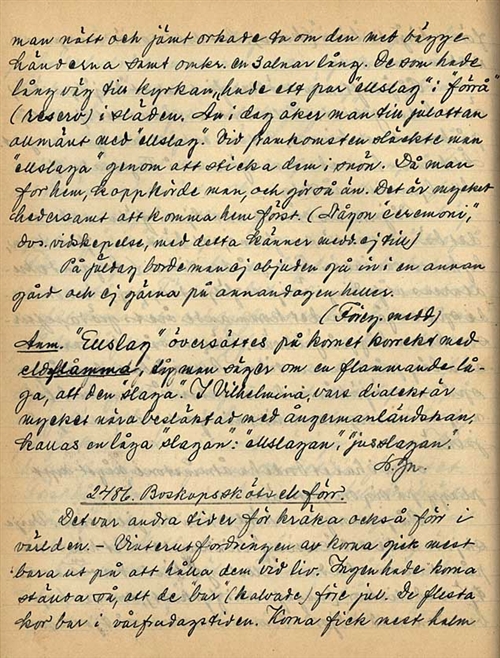 man nätt och jämt orkade ta om den med bägge
händerna samt omkr. en 3 alnar lång. De som hade
lång väg till kyrkan, hade ett par "ellslag" i "förrå"
(reserv) i släden. Än i dag åker man till julottan
allmänt med "ellslag". Vid framkomsten släckte man
"ellslaga" genom att sticka dem i snön. Då man
for hem, kappkörde man, och gör så än. Det är mycket
hedersamt att komma hem först. (Någon "ceremoni",
dvs. vidskepelse, med detta känner medd. ej till)
På juldag borde man ej objuden gå in i en annan
gård och ej gärna på annandagen heller.
(Föreg. medd)
Anm. "Ellslag" översättes på kornet korrekt med
eldsflamma, ty man säger om en flammande lå-
ga, att den "slaga." I Vilhelmina, vars dialekt är
mycket nära besläktad med ångermanländskan,
kallas en låga "slagan": "ellslagan", "jusslagan".
2486. Boskapsskötseln förr.
Det var andra tider för kräka också förr i
världen. - Vinterutfordringen av korna gick mest
bara ut på att hålla dem vid liv. Ingen hade korna
ställda så, att de "bar" (kalvade) före jul. De flesta
kor bar i vårfrudagstiden. Korna fick mest halm